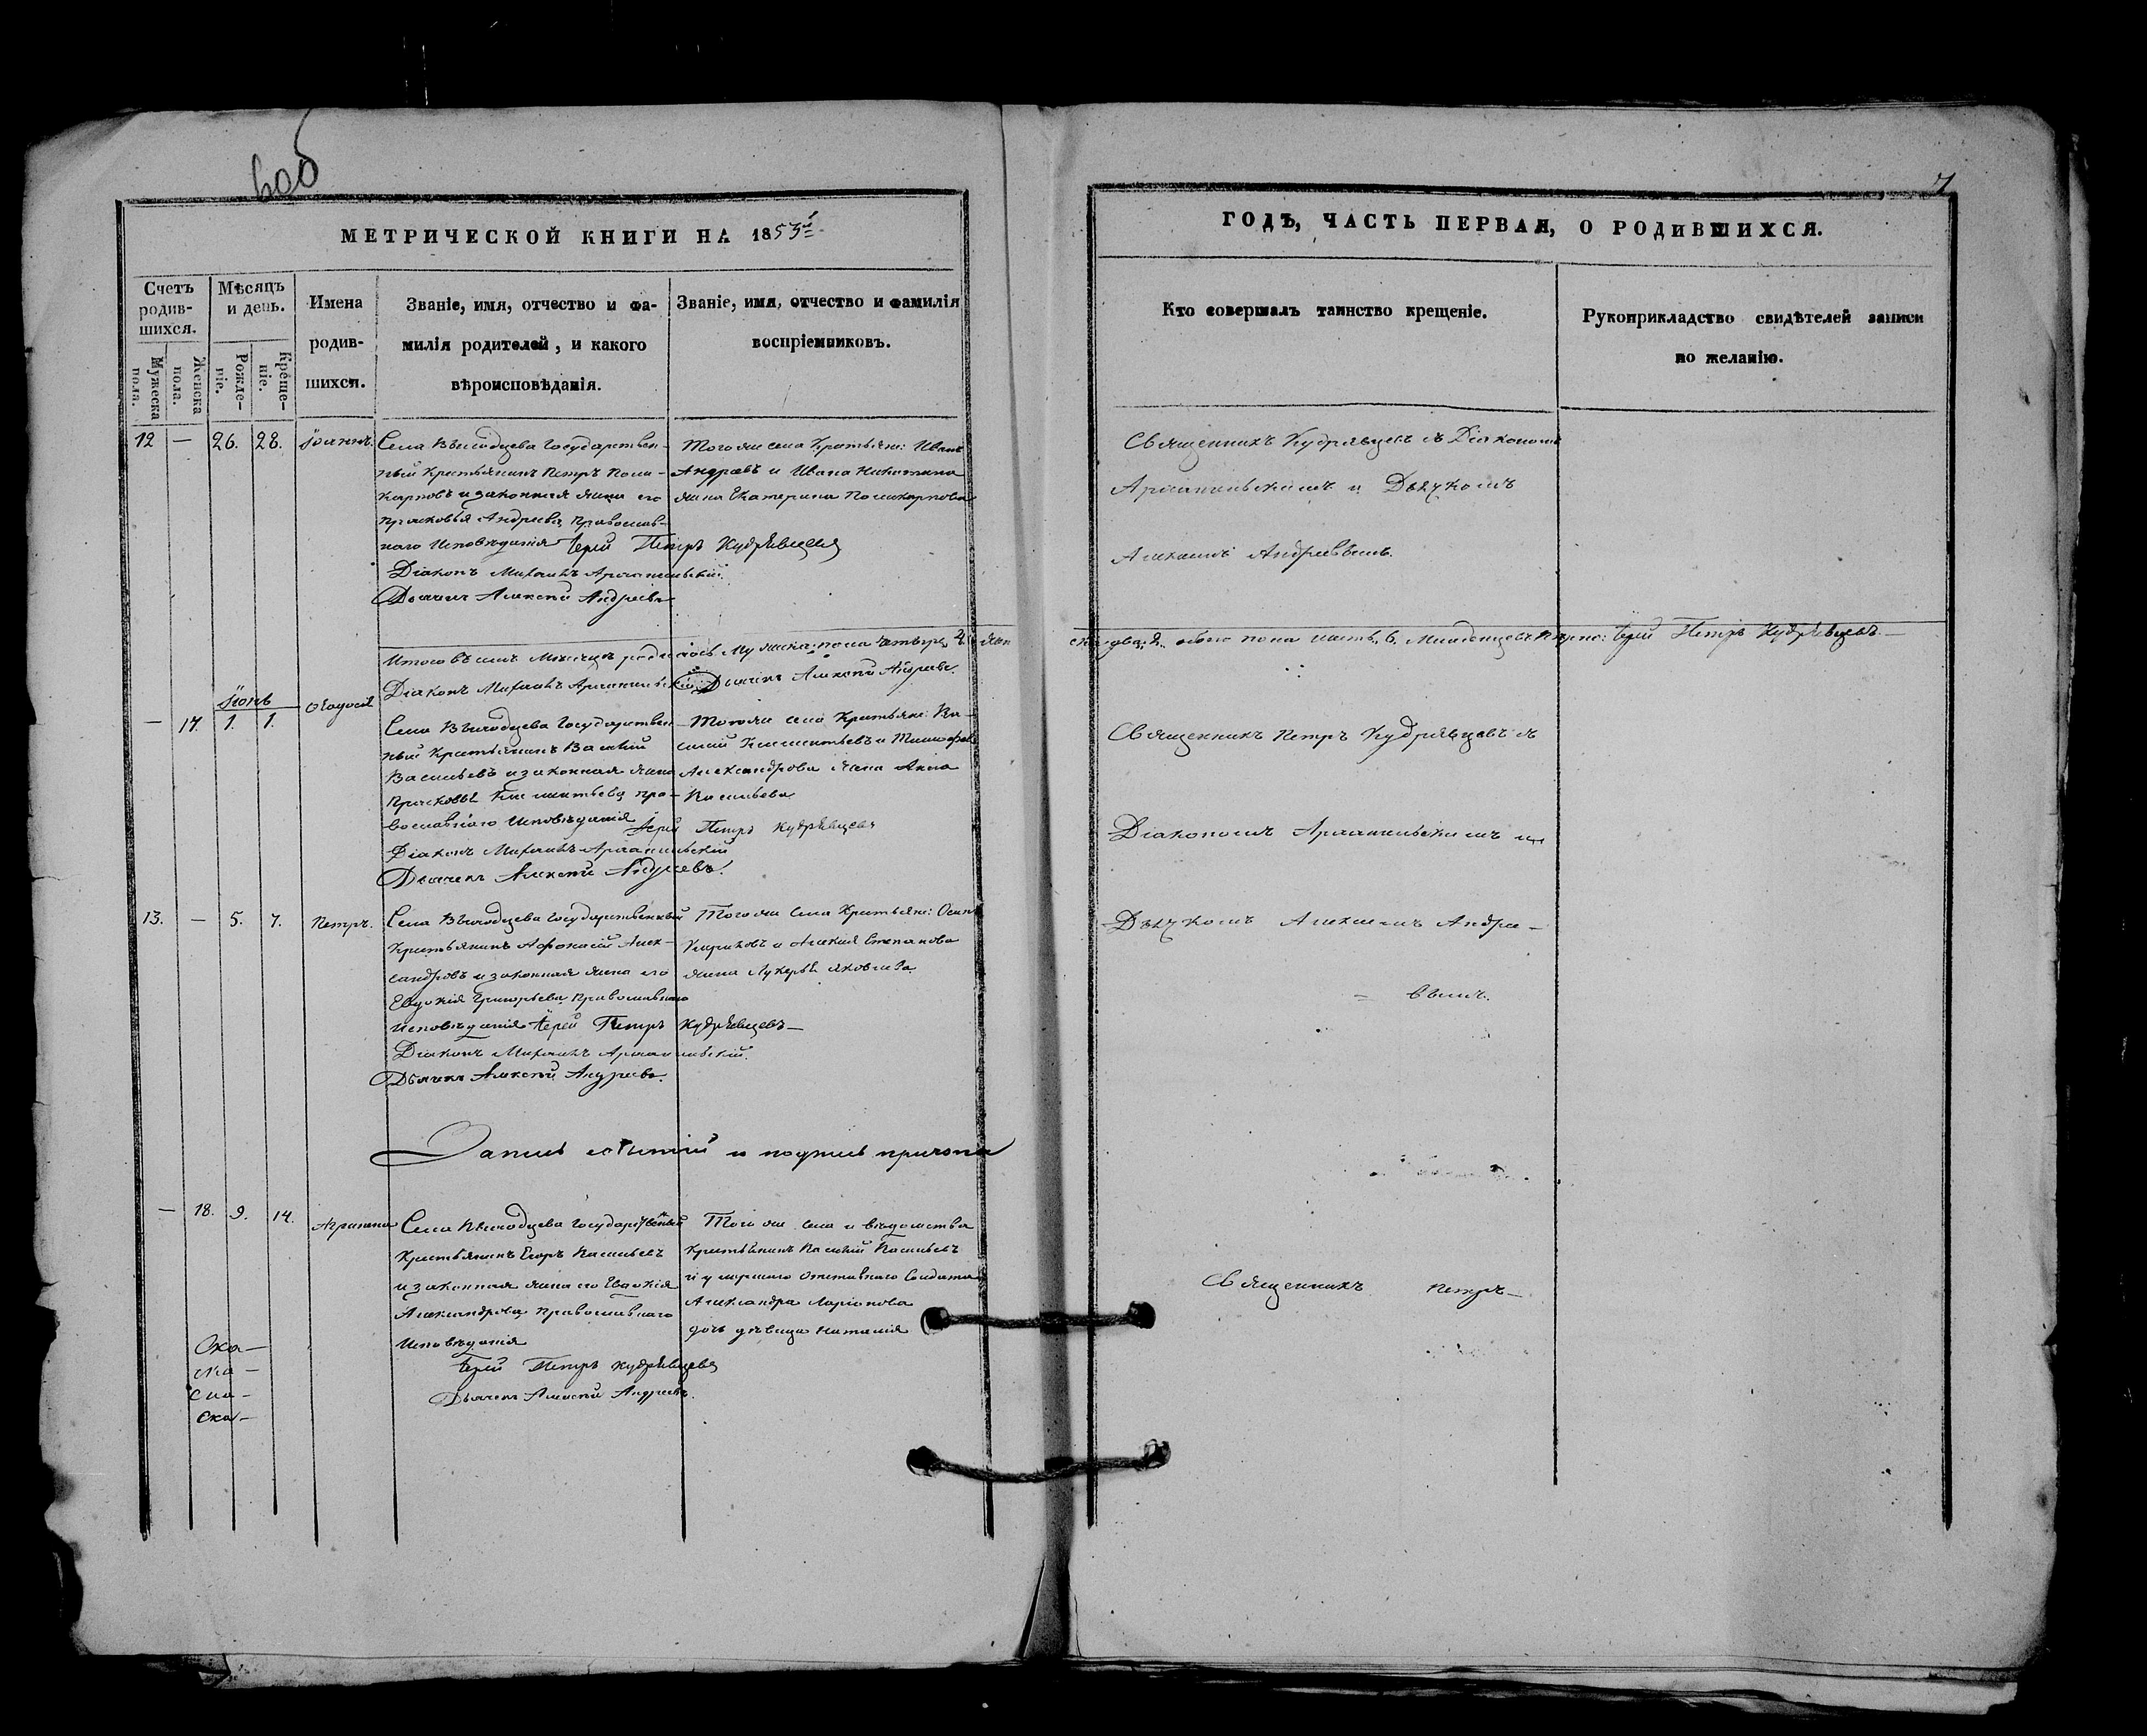 6об
7
МЕТРИЧЕСКОЙ КНИГИ НА 1853й
Счетъ родив-шихся.
Мужеска пола.
Женска пола.
Мѣсяцъ и день.
Рожде-ніе.
Креще-ніе.
Имена
родив-
шихся.
Званіе, имя, отчество и фа-
милія родителей, и какого
вѣроисповѣданія.
Званіе, имя, отчество и фамилія
воспріемниковъ.
ГОДЪ, ЧАСТЬ ПЕРВАЯ, О РОДИВШИХСЯ.
Кто совершалъ таинство крещеніе.
Рукоприкладство свидѣтелей записи
по желанію.
12 — 26. 28. Іоаннъ.
Села Выходцева Государствен-
ный Крестьянинъ Петръ Поли-
карповъ и законная жена его
Прасковья Андреева, Православ-
наго Исповѣданія Іерей Петръ Кудрявцевъ
Діаконъ Михаилъ Архангельскій.
Дьячекъ Алексѣй Андреевъ
Того же села Крестьяне: Иванъ
Андреевъ и Ивана Никитина
жена Екатерина Поликарпова
Священникъ Кудрявцевъ съ Діакономъ
Архангельскимъ и Дьячкомъ
Алексѣемъ Андреевымъ.
Итого въ семъ Мѣсяцѣ родилось Мужеска пола четыре, 4. Жен
ска два, 2. обоего пола шесть, 6. Младенцевъ Іерей Петръ Кудрявцевъ. —
Діаконъ Михаилъ Архангельскій Дьячекъ Алексѣй Андреевъ.
Іюнь
— 17. 1. 1.
Села Выходцева Государствен-
ный Крестьянинъ Василій
Васильевъ и законная жена
Прасковья Климентьева пра-
вославнаго Исповѣданія Іерей Петръ Кудрявцевъ
Діаконъ Михаилъ Архангельскій
Дьячекъ Алексѣй Андреевъ.
Того же села Крестьяне: Ва-
силій Климентьевъ и Тимофея
Александрова жена Анна
Васильева
Священникъ Петръ Кудрявцевъ съ
Діакономъ Архангельскимъ и
Дьячкомъ Алексѣемъ Андре-
= вымъ.
13. — 5. 7. Петръ.
Села Выходцева Государственный
Крестьянинъ Афонасій Алек-
сандровъ и законная жена его
Евдокія Григорьева, Православнаго
Исповѣданія Іерей Петръ Кудрявцевъ —
Діаконъ Михаилъ Архангельскій.
Дьячекъ Алексѣй Андреевъ.
Того же Села Крестьяне: Осипъ
Кириковъ и Алексѣя Степанова
жена Лукерья Яковлева
Запись и подпись причта
— 18. 9. 14. Агрипена
Села Выходцева Государственный
Крестьянинъ Егоръ Васильевъ
и законная жена его Евдокія
Александрова, Православнаго
Исповѣданія
Іерей Петръ Кудрявцевъ
Дьячекъ Алексѣй Андреевъ.
Того же села и вѣдомства
Крестьянинъ Василій Васильевъ
и умершаго отставнаго Солдата
Александра Ларіонова
дочь дѣвица Наталія
Священникъ Петръ —